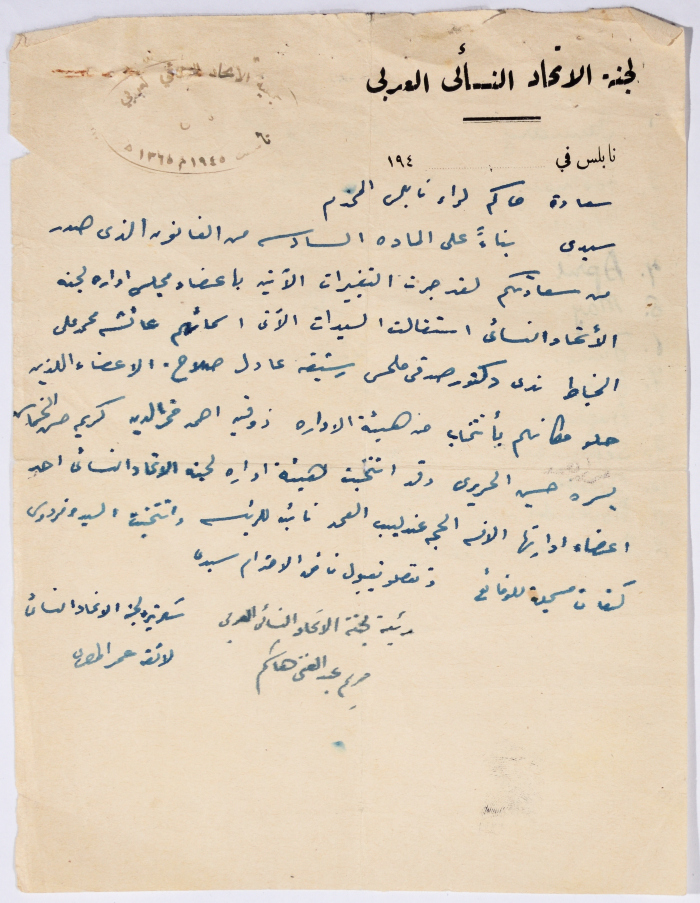 لجنة الاتحاد النسائي العربي
١٩٤٥م ١٣٦٥ه
نابلس في ١٩٤
سعادة حاكم لواء نابلس المحترم
سيدي بناءً على الماده السادسه من القانون الذي صدر
من سعادتكم لقد جرت التغيرات الآتيه باعضاء مجلس اداره لجنه
الأتحاد النسائي استقالت السيدات الآتي اسمائهم عائشه محمد علي
الخياط ندى دكتور صدقي ملحس رشيقه عادل صلاح. الاعضاء اللذين
حلو مكانهم بأنتخاب من هيئة الاداره ذوقيه احمد فخرالدين كريم حسن الخماش
يسره حسين الحريري وقد انتخبت هيئة اداره لجنه الاتحاد النسائي احد
اعضاء ادارتها الانسه عندليب العمد نائبه للرئيسه وانتخبت السيده فردوس
كنعان مسجلة للوقائع وتفضلو بقبول فائق الاحترام سيدي
رئيسة لجنة الاتحاد النسائي العربي
مريم عبد الغني هاشم
سكرتيره لجنة الاتحاد النسائي
لائقه عمر المصري